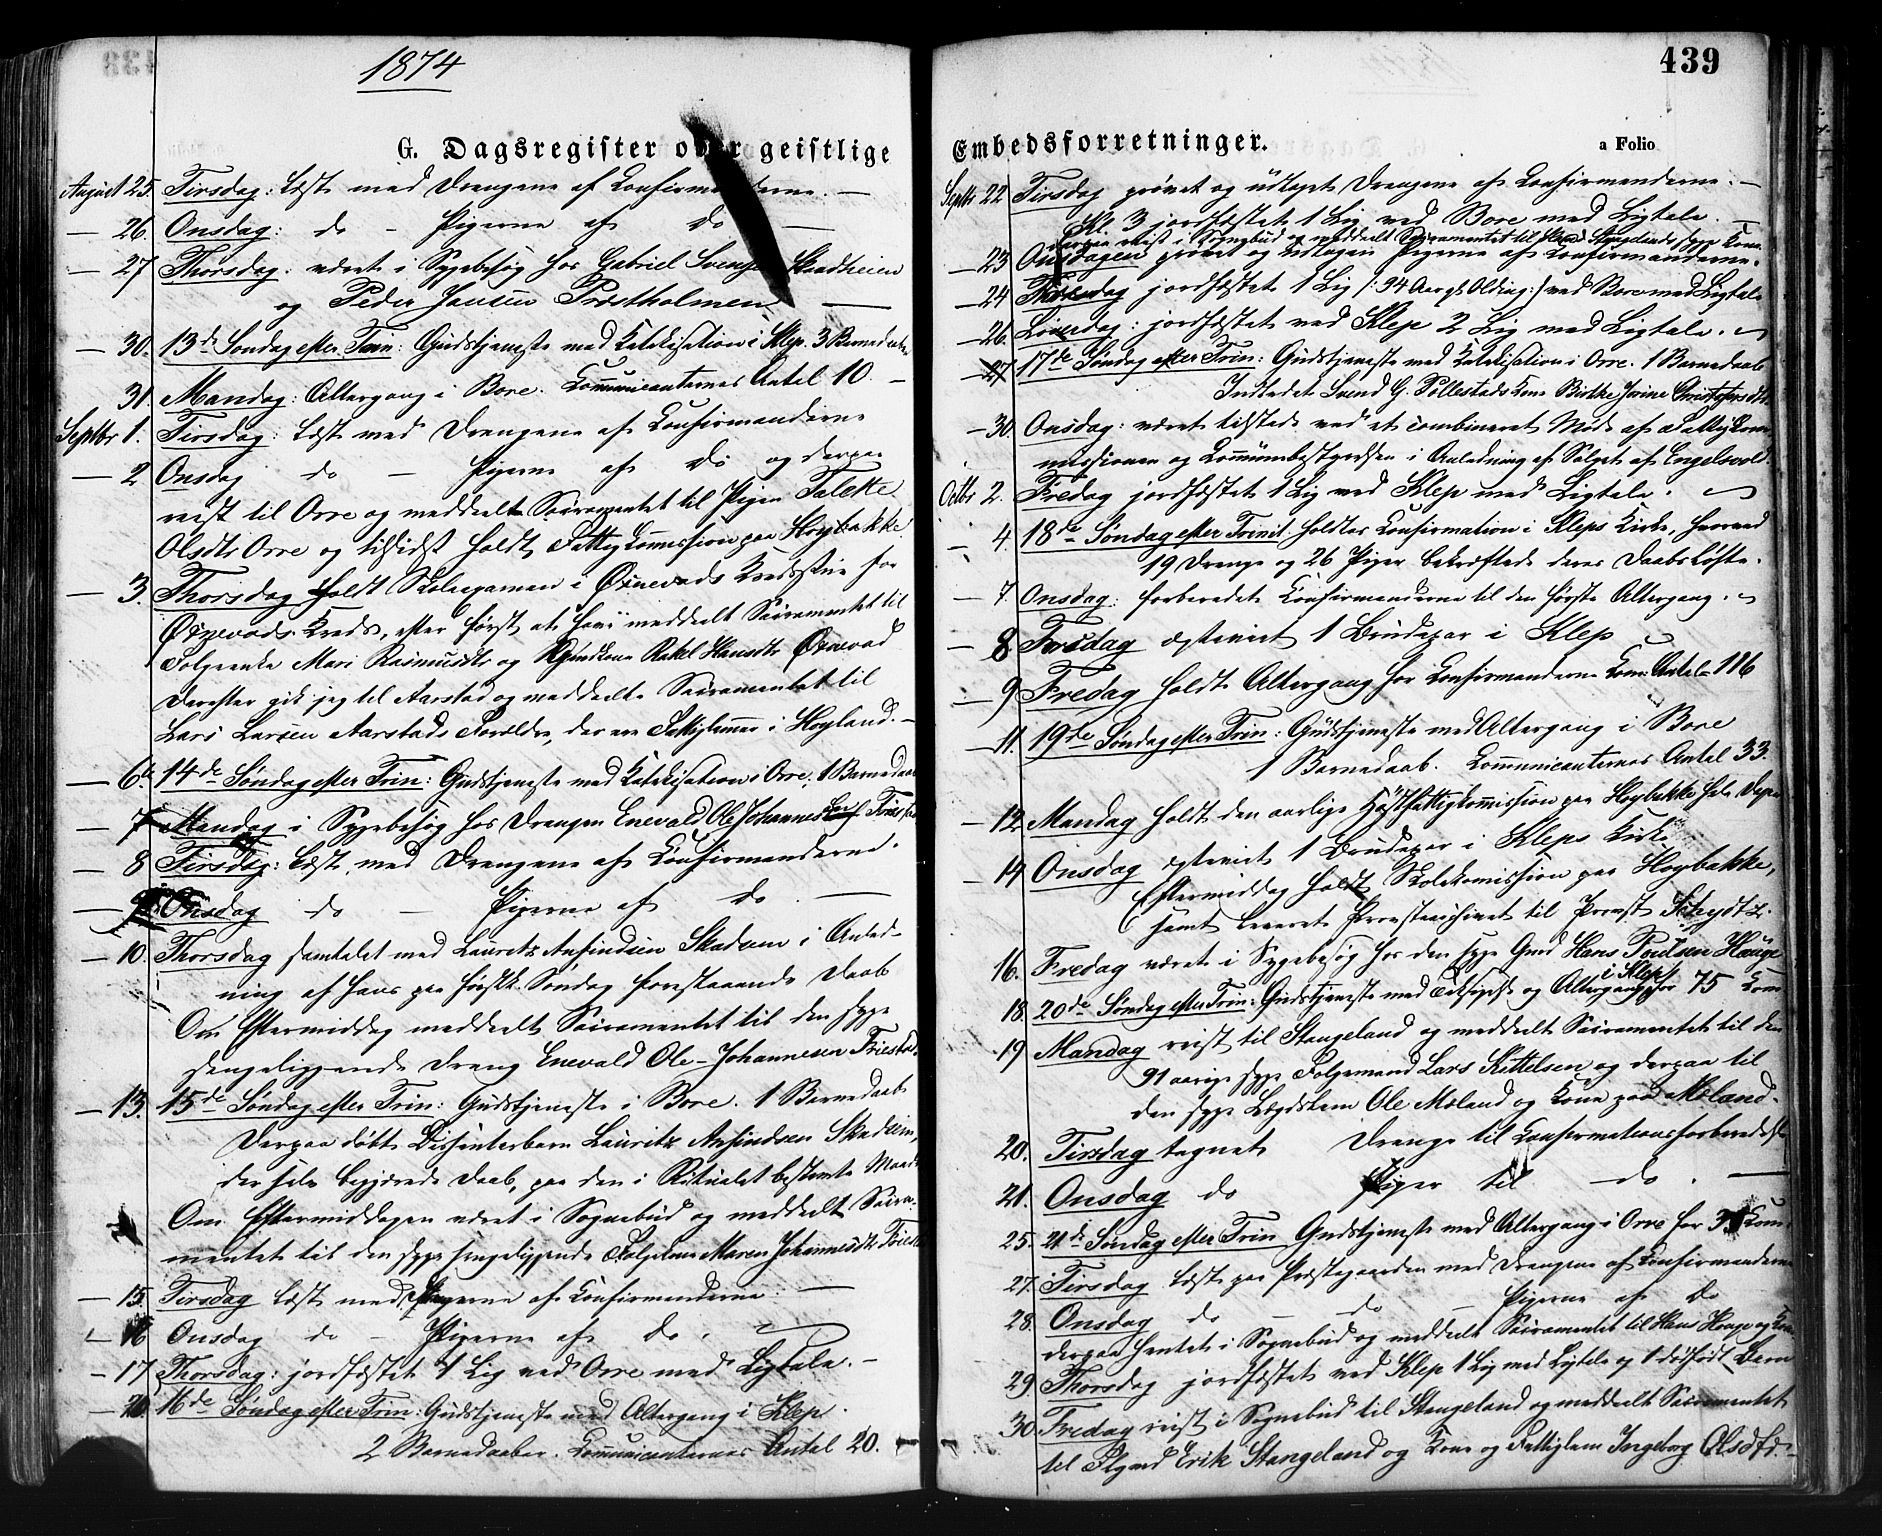 1874
G. Dagsregister over geistlige
August 25. Tirsdag: Læst med Drengene af Confirmanderne. —
— 26. Onsdag: do — Pigerne af do —
— 27 Thorsdag: været i Sygebesøg hos Gabriel Svendsen Skadheien
og Peder Hansen Præstholmen —
— 30. 13de Søndag efter Trin: Gudstjeneste med Katekisation i Klep. 3 Barnedaab
31. Mandag: Altergang i Bore. Communicanternes Antal 10. —
Septbr 1. Tirsdag: Læst med Drengene af Confirmanderne
— 2 Onsdag do — Pigerne af do og derpaa
reist til Orre og meddeelt Sacramentet til Pigen Talette
Olsdtr Orre og tilsidst holdt Fattigkommission paa Høybakke.
— 3. Thorsdag holdt Skoleexamen i Ørnevads Kredsstue for
Ørnevads Kreds, efter først at have meddeelt Sacramentet til
Folgeenke Mari Rasmusdtr og Kone Rakel Hansdtr Ørnevad
Derefter gik jeg til Aarstad og meddeelte Sacramentet til
Lars Larsen Aarstads Forældre, der ere Fattiglemmer i Høyland. —
— 6te 14de Søndag efter Trin: Gudstjeneste med Katekisation i Orre. 1 Barnedaab
— 7 Mandag i Sygebesøg hos Drengen Enevald Ole Johannes Friestad
— 8 Tirsdag: Læst med Drengene af Confirmanderne.
— 9 Onsdag do — Pigerne af do —
— 10. Thorsdag samtalet med Lauritz Anfindsen Skadsem i Anled-
ning af hans paa førstk. Søndag forestaaende Daab
Om Eftermiddag meddeelt Sacramentet til den syge
sengeliggende Dreng Enevald Ole Johannesen Friestad.
— 13. 15de Søndag efter Trin: Gudstjeneste i Bore. 1 Barnedaab
Derpaa døbt Dissenterbarn Lauritz Anfindsen Skadsem,
der selv begjærede Daab, paa den i Ritualet bestemte Maade
Om Eftermiddagen været i Sognebud og meddeelt Sacra-
mentet til den syge sengeliggende Maren Johannesdtr Friestad
— 15. Tirsdag Læst med Pigerne af Confirmanderne —
— 16 Onsdag do — Pigerne af do.
— 17 Thorsdag: jordfæstet 1 Lig ved Orre med Ligtale. —
— 20. 16de Søndag efter Trin: Gudstjeneste med Altergang i Klep.
2 Barnedaaber. Communicanternes Antal 20.
439
Embedsforretninger.
a Folio
Septbr 22 Tirsdag prøvet og udtaget Drengene af Confirmanderne. —
Kl. 3 jordfæstet 1 Lig ved Bore med Ligtale. —
derpaa reist i Sognebud og meddeelt Sacramentet til Stangelands syge Kone.
— 23 Onsdagen prøvet og udtagen Pigerne af Confirmanderne.
— 24 Thorsdag jordfæstet 1 Lig /: 94 Aar gl. Olding :/ ved Bore med Ligtale
— 26. Løverdag: jordfæstet ved Klep 2 Lig med Ligtale.
— 27 17de Søndag efter Trin: Gudstjeneste med Katekisation i Orre. 1 Barnedaab
Indledet Svend G. Pollestads Kone Birthe Jorine Christophersdtr.
— 30. Onsdag: været tilstede ved et combineret Møde af Fattigkom-
missionen og Kommunbestyrelsen i Anledning af Salget af Engelsvold.
Octbr 2. Fredag jordfæstet 1 Lig ved Klep med Ligtale.
— 4. 18de Søndag efter Trinit. holdtes Confirmation i Kleps Kirke, hvorved
19 Drenge og 26 Piger bekræftede deres Daabsløfte.
— 7. Onsdag: forberedet Confirmanderne til den første Altergang.
— 8 Torsdag ægteviet 1 Brudepar i Klep
— 9 Fredag holdt Altergang for Confirmanderne Kom: Antal 116
— 11. 19de Søndag efter Trin: Gudstjeneste med Altergang i Bore
1 Barnedaab. Communicanternes Antal 33.
— 12 Mandag holdt den aarlige Høstfattigkommission paa Høybakke hele Dagen
— 14 Onsdag ægteviet 1 Brudepar i Kleps Kirke.
Eftermiddag holdt Skolekommission paa Høybakke,
samt leveret Provstearchivet til Provst Schydtz.
16. Fredag været i Sygebesøg hos den syge Gmd Hans Poulsen Hauge
i Klep
18. 20de Søndag efter Trin: Gudstjeneste med Altergang for 75 Kom
19 Mandag reist til Stangeland og meddeelt Sacramentet til den
91 aarige syge Folgemand Lars Kittelsen og derpaa til
den syge Lægdslem Ole Meland og Kone paa Meland.
20. Tirsdag tegnet Drenge til Confirmationsforberedelse
21. Onsdag do Piger til do. —
25. 21de Søndag efter Trin Gudstjeneste med Altergang i Orre for Kom
27. Tirsdag Læst paa Præstegaarden med Drengene af Confirmanderne
28. Onsdag do — do — Pigerne af do
derpaa hentet i Sognebud og meddeelt Sacramentet til Hans Hauge og Kone.
29. Thorsdag jordfæstet ved Klep 1 Lig med Ligtale og 1 dødfødt Barn
30. Fredag reist i Sognebud til Stangeland og meddeelt Sacramentet
til Erik Stangeland og Kone og Fattiglem Ingeborg Olsdtr. —